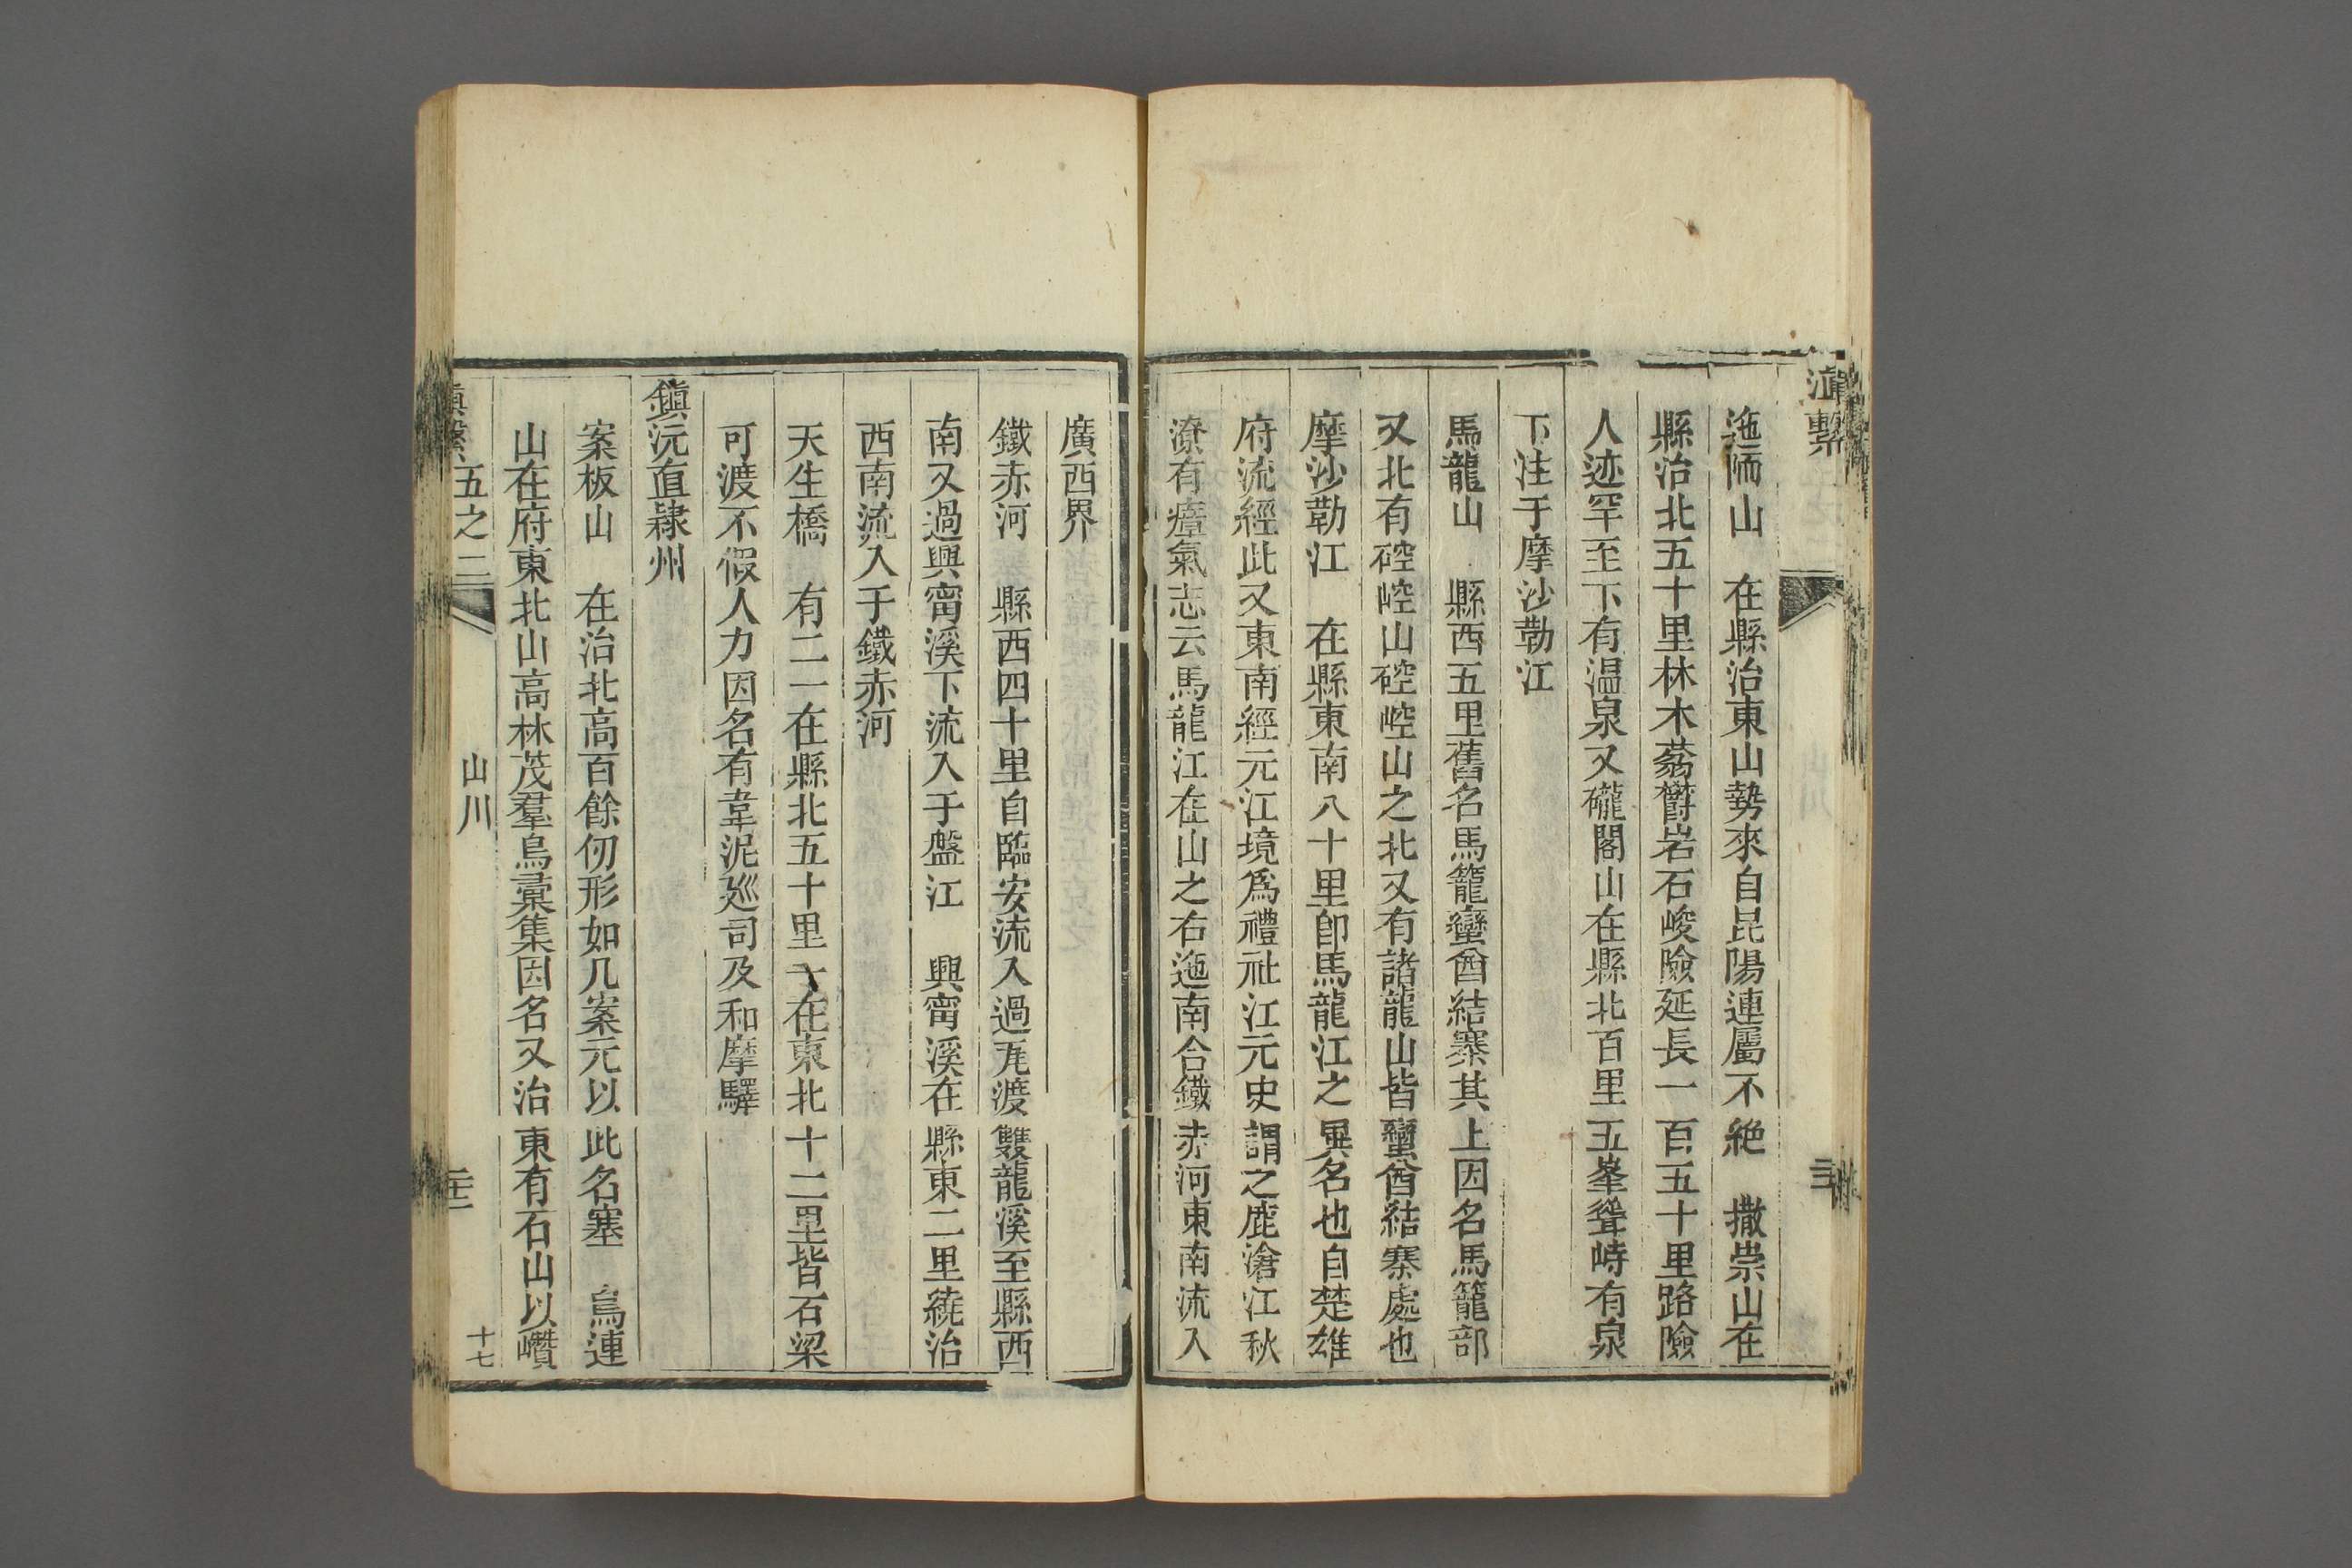 滇繫
迤陑山　在縣治東山勢來自昆陽連屬不絶　撒崇山在
縣治北五十里林木蓊欝岩石峻險延長一百五十里路險
人迹罕至下有温泉又礲閣山在縣北百里五峯聳峙有泉
下注于摩沙勒江
馬龍山　縣西五里舊名馬籠蠻酋結寨其上因名馬籠部
又北有硿崆山硿崆山之北又有諸龍山皆蠻酋結寨處也
摩沙勒江　在縣東南八十里卽馬龍江之異名也自楚雄
府流經此又東南經元江境爲禮社江元史謂之鹿滄江秋
潦有瘴氣志云馬龍江在山之右迤南合鐵赤河東南流入
廣西界
鐵赤河　縣西四十里自臨安流入過㼚渡雙龍溪至縣西
南又過興甯溪下流入于盤江　興甯溪在縣東二里繞治
西南流入于鐵赤河
天生橋　有二一在縣北五十里一在東北十二里皆石梁
可渡不假人力因名有韋泥廵司及和摩驛
鎮沅直隷州
案板山　在治北高百餘仞形如几案元以此名塞　烏連
山在府東北山高林茂羣鳥彙集因名又治東有石山以巑
滇繫　五之二　山川　十七